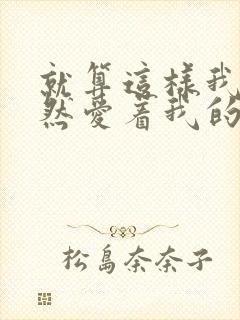 就算這樣我
然愛着我的
松島奈奈子